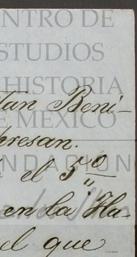 NTRO DE
ESTUDIOS
HISTORIA
DE MÉXICO
FUNDACIÓN
Tan Beni-
eresan.
el 5
en la Ha-
el que